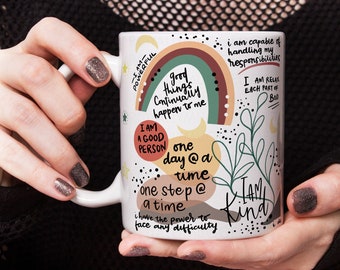 I AM
POWERFUL
good
things
Continually
happen to me
i am capable of
handling my
responsibilities
I AM RELAX
EACH PART OF
BAD
I AM
A GOOD
PERSON
one
day @ a
time
one step @
a time
I AM
Kind
i have the power to
face any difficulty